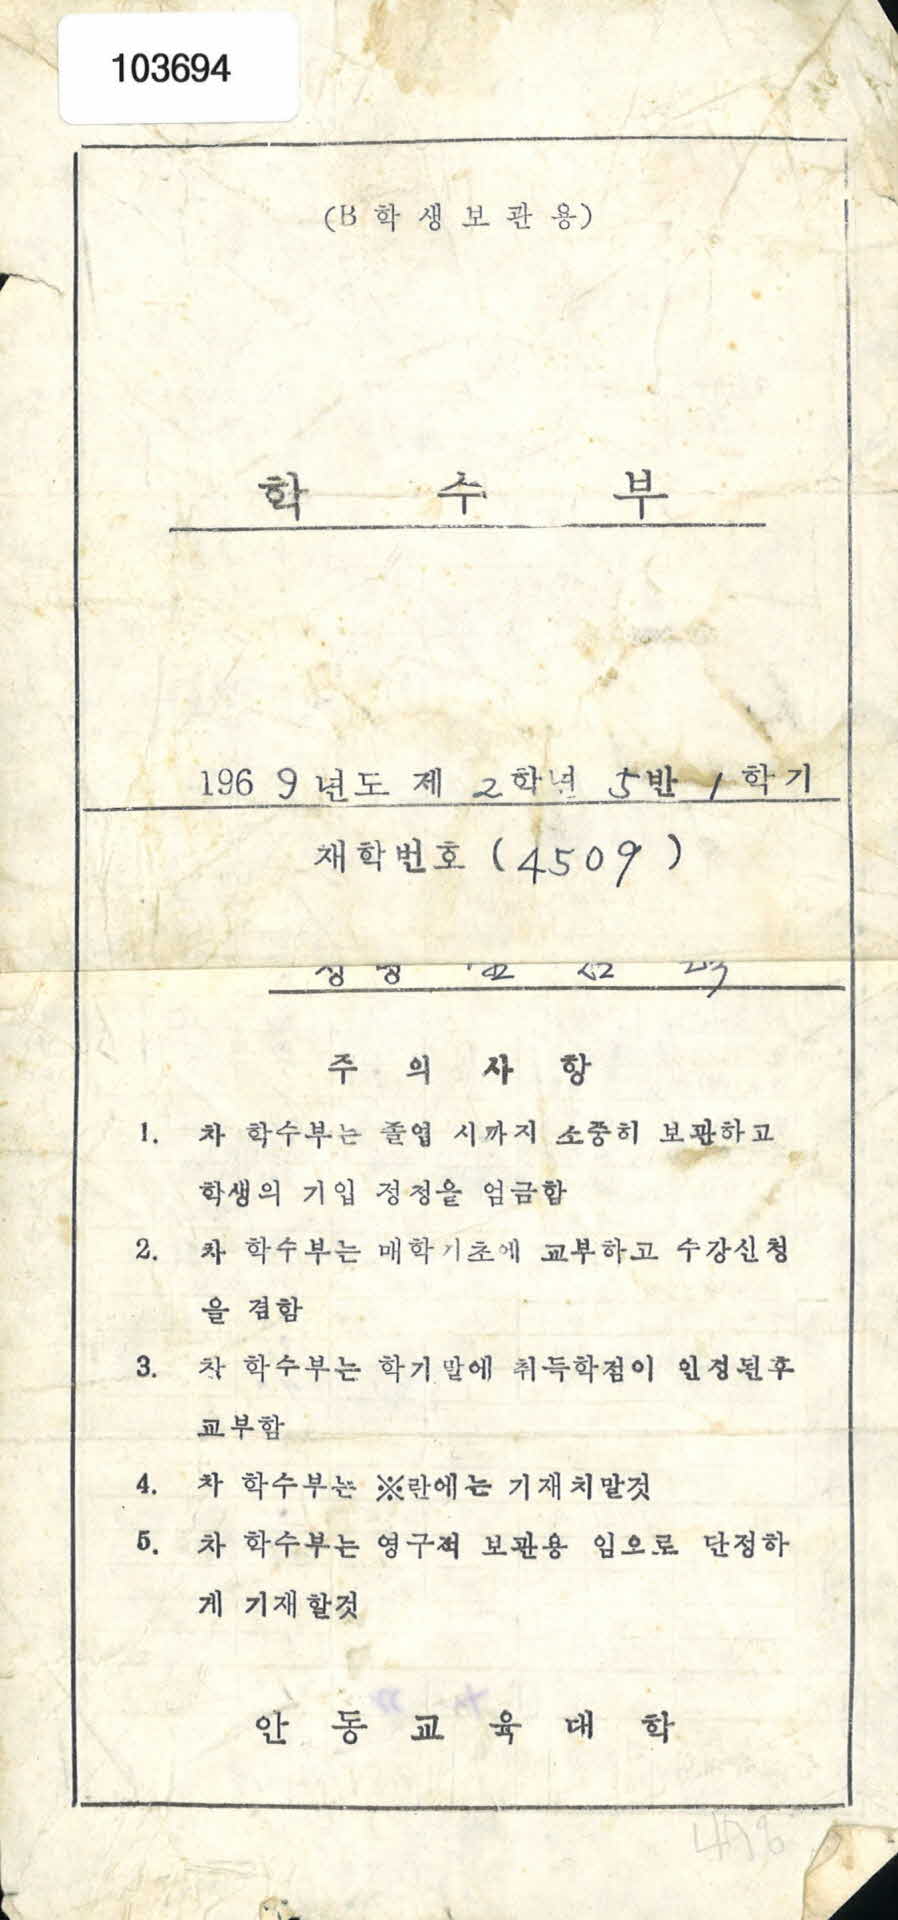 103694
(B 학생보관용)
학 수 부
196 9 년도 제 2 학년 5 반 1 학기
재학번호 (4509)
성명
주 의 사 항
1. 차 학수부는 졸업 시까지 소중히 보관하고
학생의 기입 정정을 엄금함
2. 차 학수부는 매학기초에 교부하고 수강신청
을 겸함
3. 차 학수부는 학기말에 취득학점이 인정된후
교부함
4. 차 학수부는 ※란에는 기재치말것
5. 차 학수부는 영구적 보관용 임으로 단정하
게 기재할것
안 동 교 육 대 학